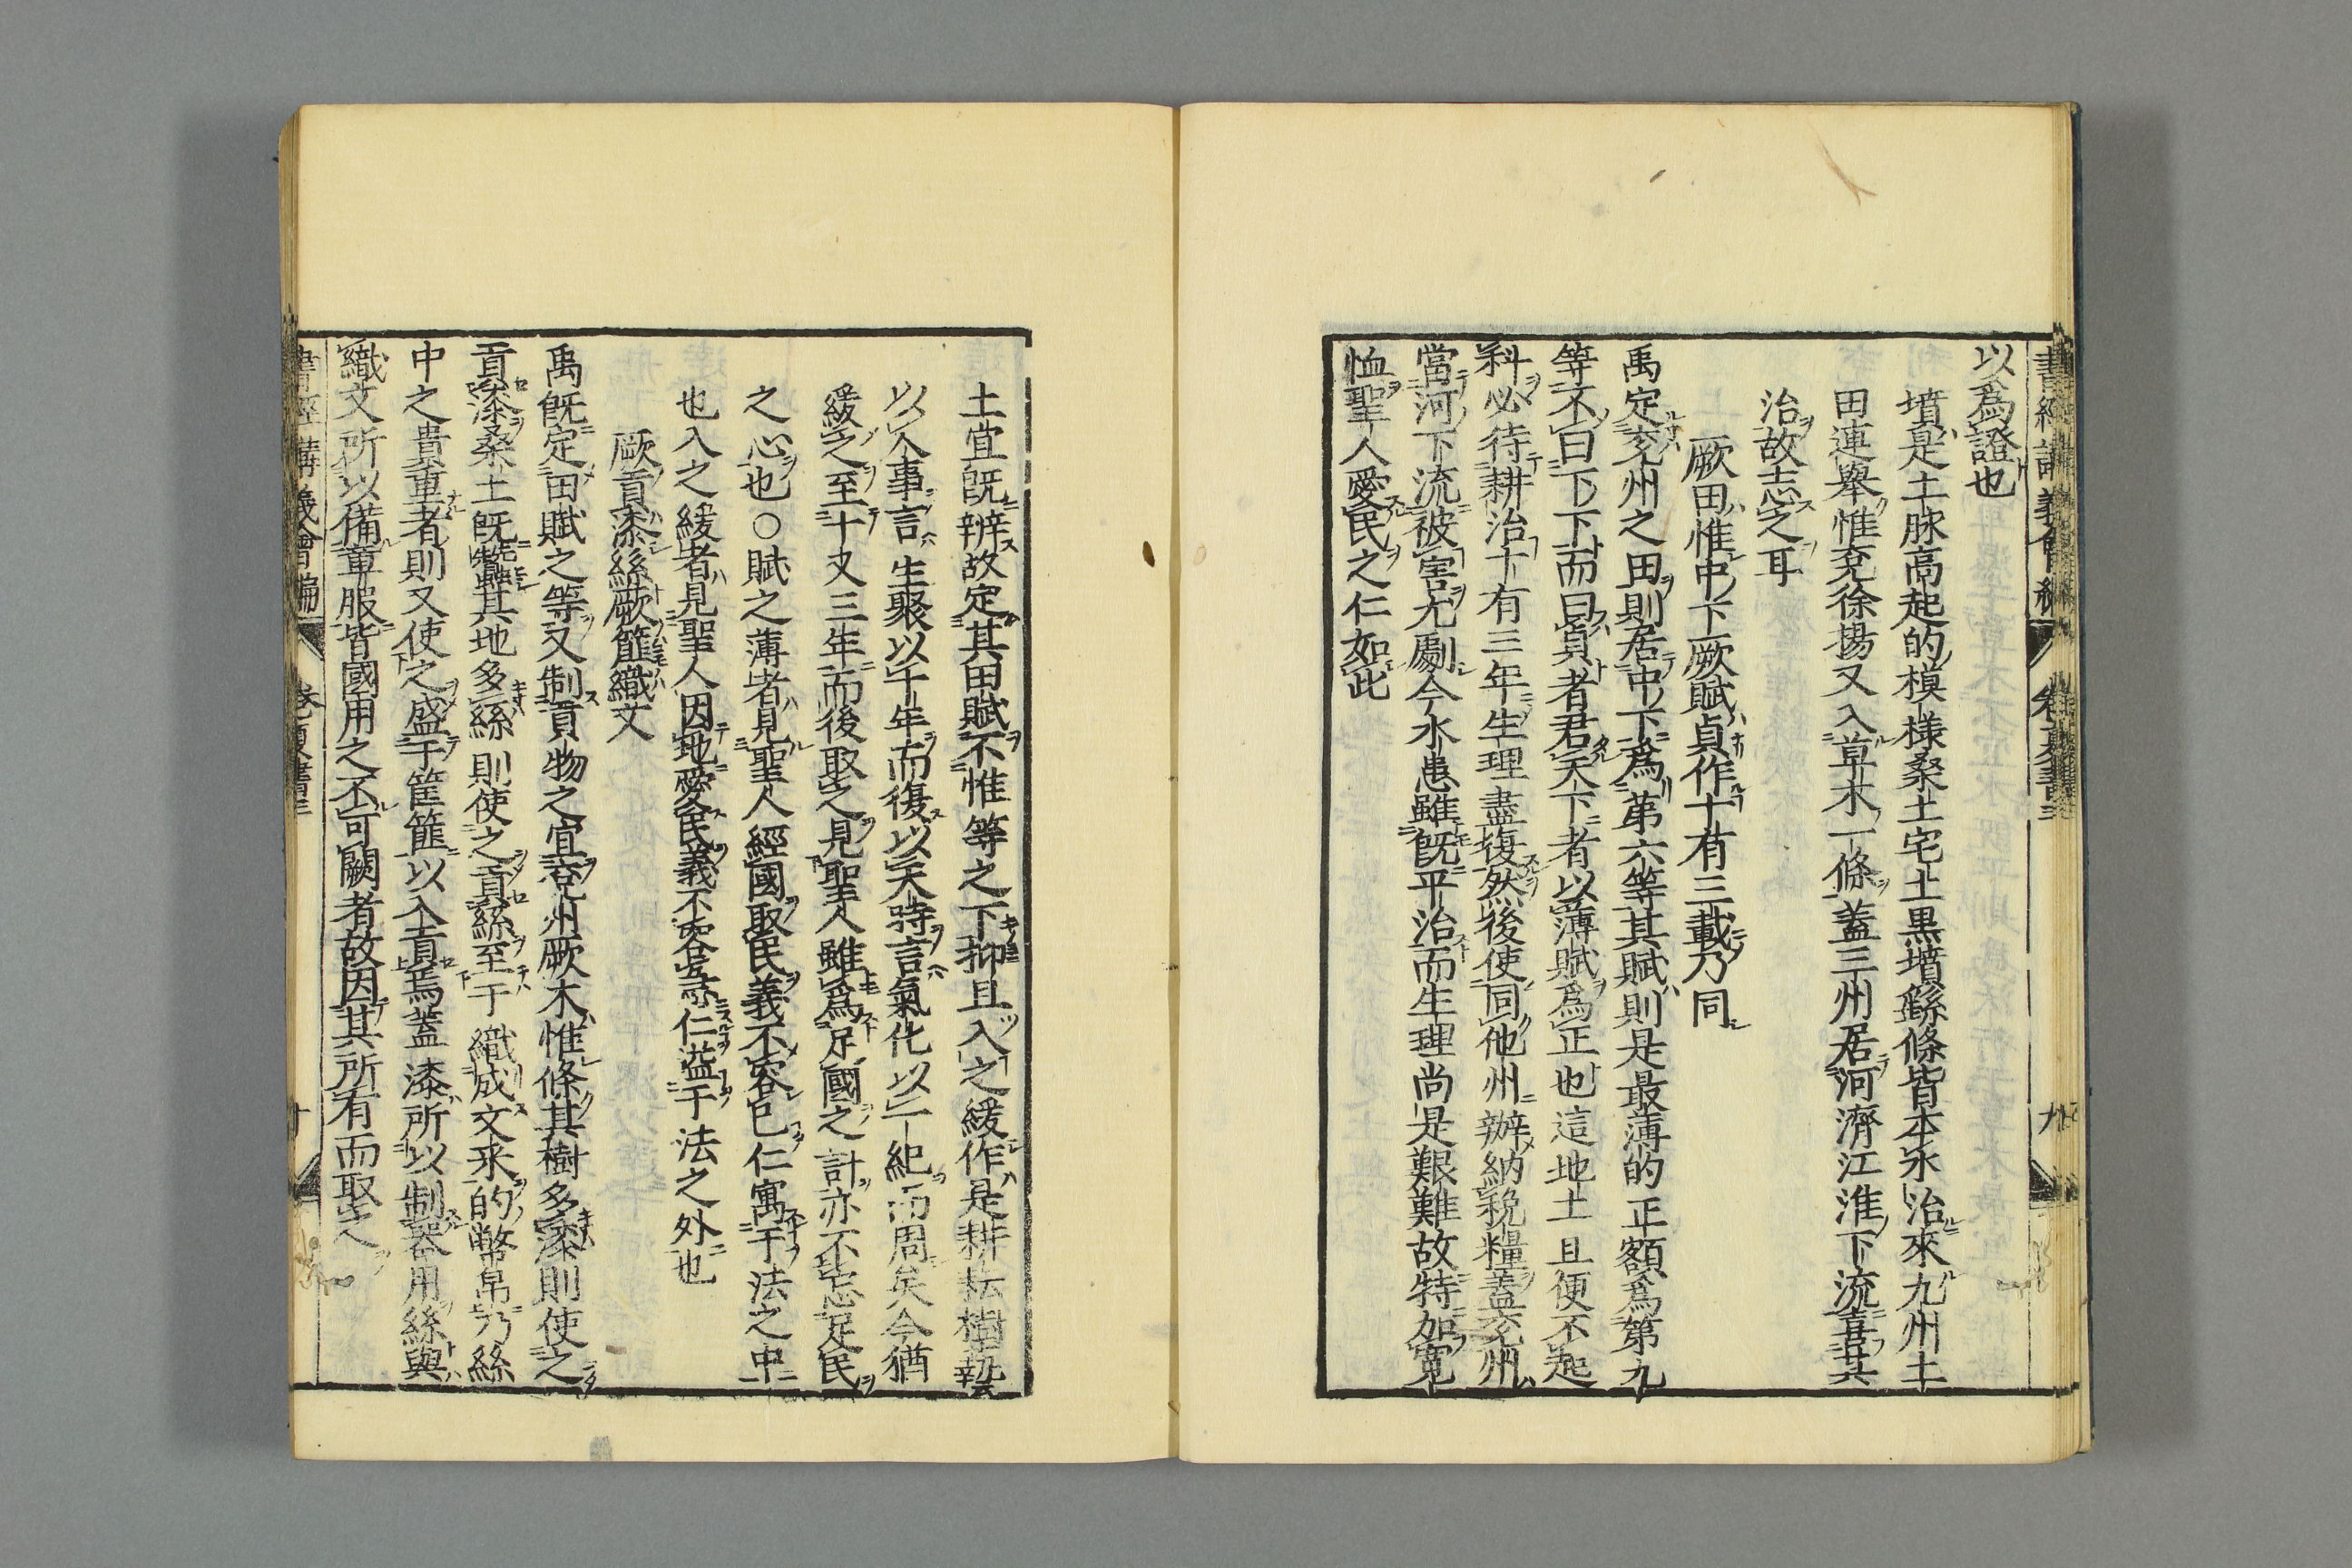 書經講義會編 卷 夏書三 九
以為證也
墳是土脉高起的模樣桑土宅土黒墳繇條皆本水治來九州土
田連舉惟兗徐揚又入草木一條蓋三州居河濟江淮下流喜其
治故志之耳
厥田惟中下厥賦貞作十有三載乃同
禹定兗州之田則居中下為第六等其賦則是最薄的正額為第九
等不曰下下而曰貞者君天下者以薄賦為正也這地土且便不起
科必待耕治十有三年生理盡復然後使同他州辦納稅糧蓋兗州
當河下流被害尤劇今水患雖既平治而生理尚是艱難故特加寬
恤聖人愛民之仁如此
土宜既辨故定其田賦不惟等之下抑且入之緩作是耕耘樹藝
以人事言生聚以十年而復以天時言氣化以一紀而周矣今猶
緩之至十又三年而後取之見聖人雖為足國之計亦不忘足民
之心也○賦之薄者見聖人經國取民義不容已仁寓于法之中
也入之緩者見聖人因地愛民義不容忘仁溢于法之外也
厥貢漆絲厥篚織文
禹既定田賦之等又制貢物之宜兗州厥木惟條其樹多漆則使之
貢漆桑土既蠶其地多絲則使之貢絲至于織成文采的幣帛乃絲
中之貴重者則又使之盛于筐篚以入貢焉蓋漆所以制器用絲與
織文所以備章服皆國用之不可闕者故因其所有而取之
書經講義會編 卷 夏書三 十